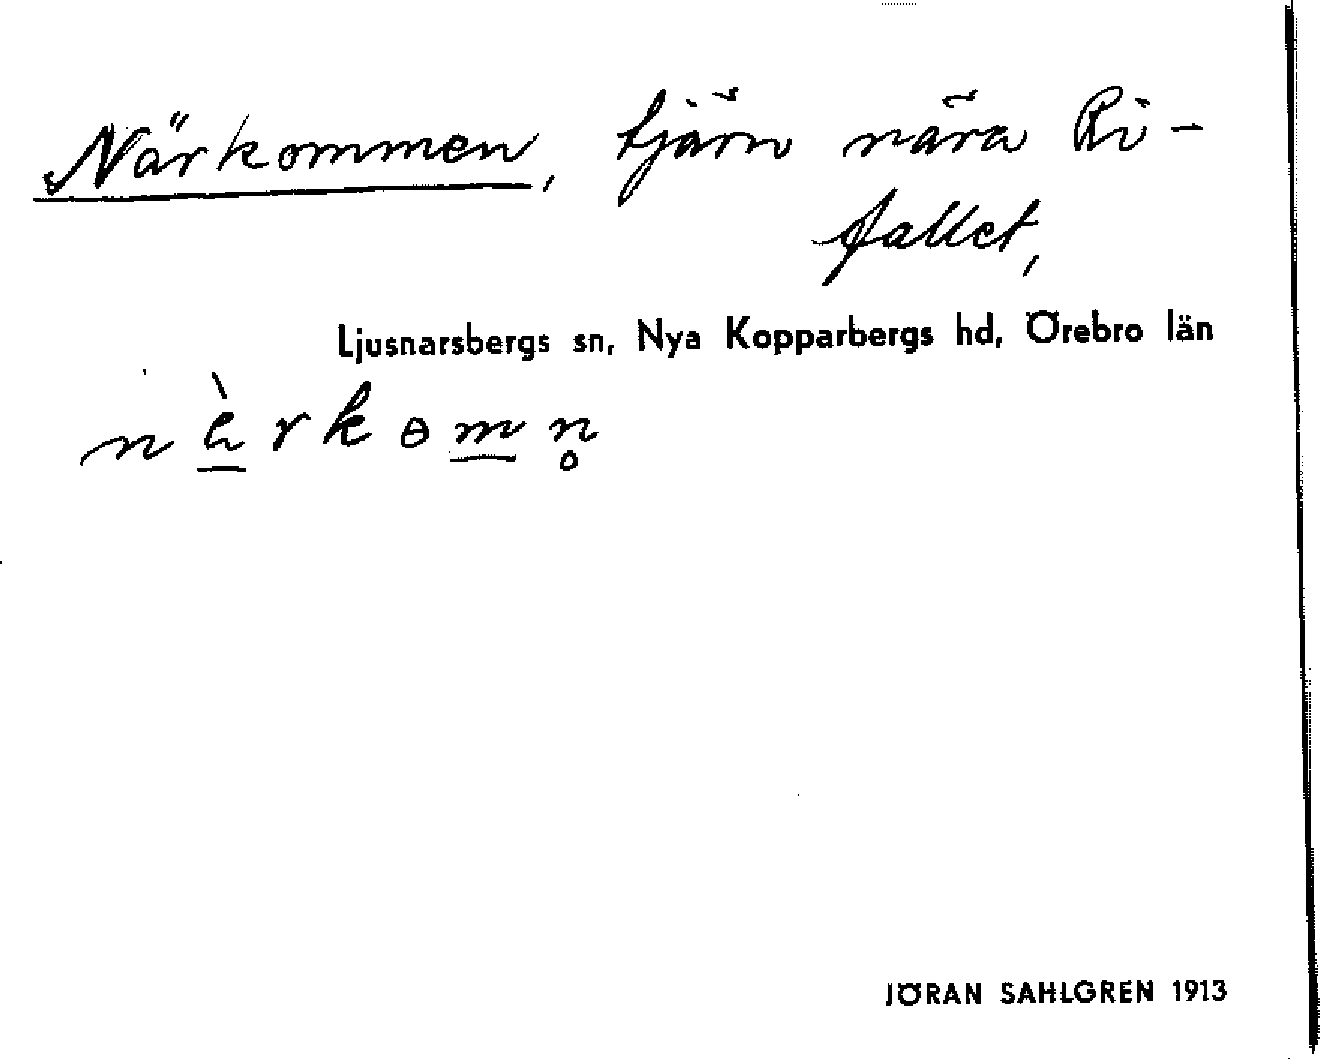 Närkommen, tjärn nära Ri-
fallet,
Ljusnarsbergs sn, Nya Kopparbergs hd, Örebro län
nὲrkɵmn̥
JÖRAN SAHLGREN 1913